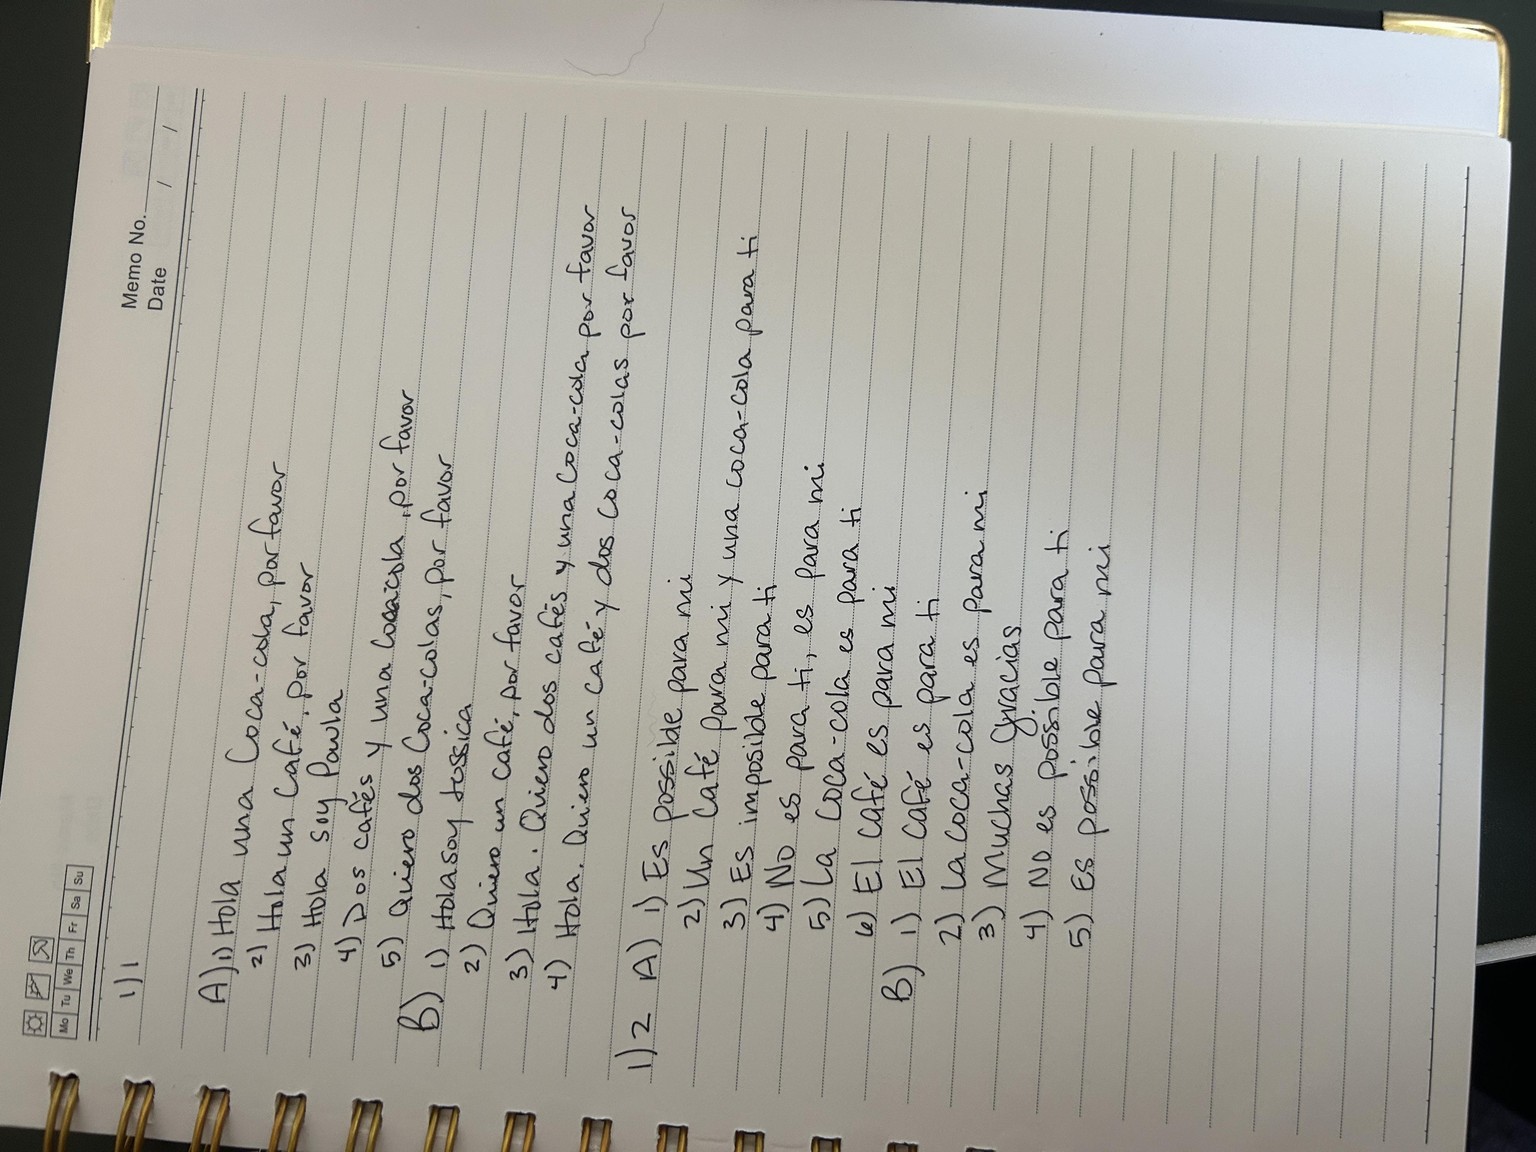 Memo No.
Mo Tu We Th Fr Sa Su
Date / /
1) 1
A) 1) Hola una Coca-cola, por favor
2) Hola un Café, por favor
3) Hola soy Paula
4) Dos cafés y una Cocacola, por favor
5) Quiero dos Coca-colas, por favor
B) 1) Hola soy Jessica
2) Quiero un café, por favor
3) Hola. Quiero dos cafés y una Coca-cola por favor
4) Hola. Quiero un café y dos coca-colas por favor
1) 2 A) 1) Es possible para mi
2) Un Café para mi y una coca-cola para ti
3) Es imposible para ti
4) No es para ti, es para mi
5) La coca-cola es para ti
6) El café es para mi
B) 1) El café es para ti
2) La coca-cola es para mi
3) Muchas Gracias
4) No es possible para ti
5) Es possible para mi